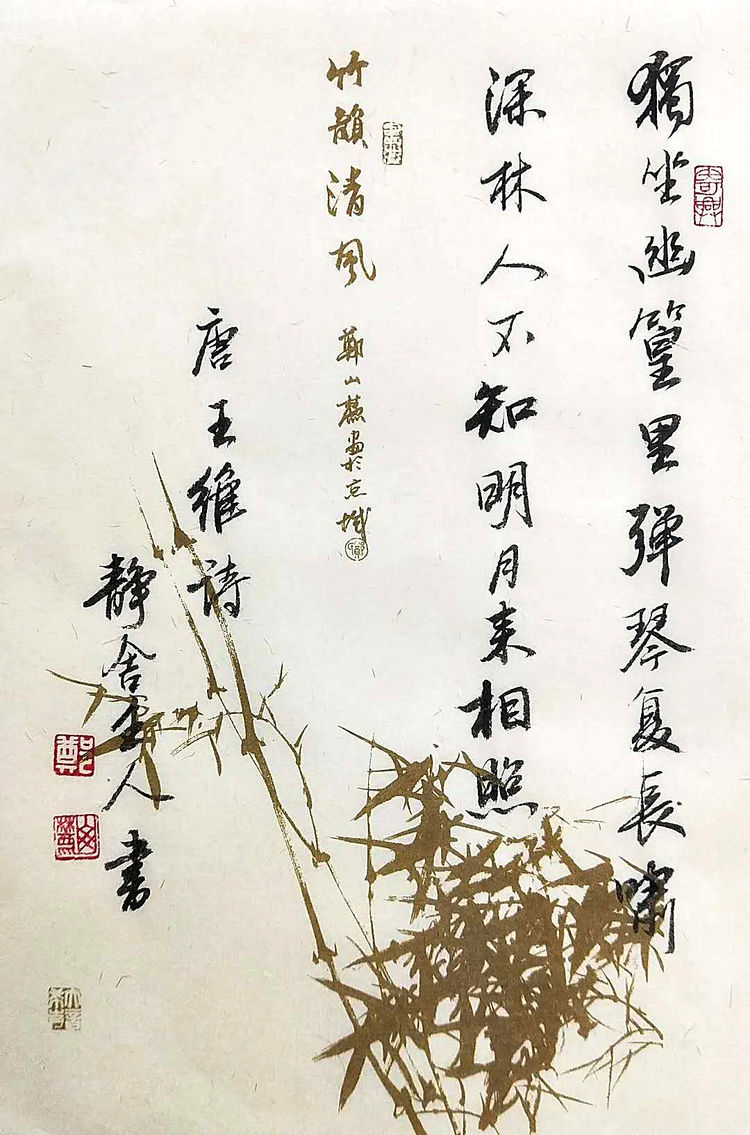 獨坐幽篁里弹琴复長嘯
深林人不知明月来相照
竹韻清風
鄭山麓画於京城
唐王維詩
静舍人書